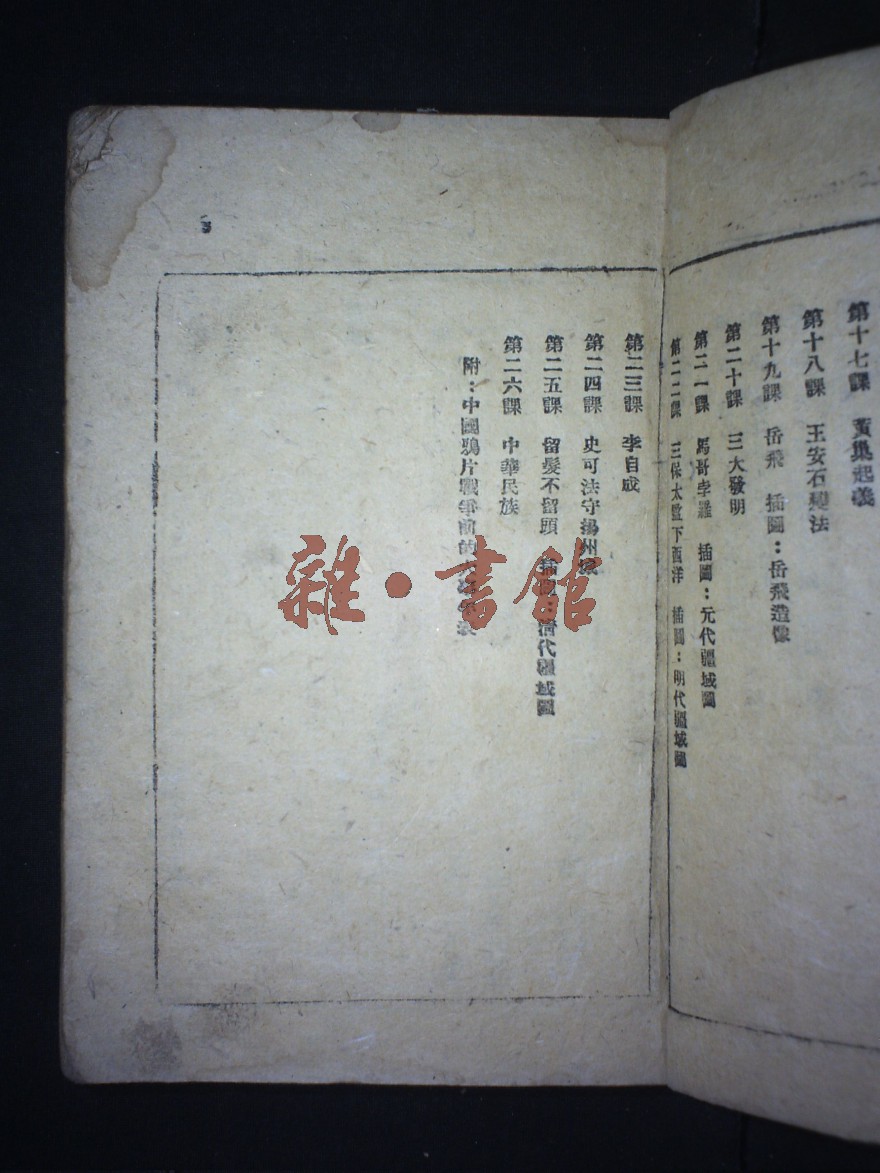 第十七課 黃巢起義
第十八課 王安石變法
第十九課 岳飛 插圖：岳飛造像
第二十課 三大發明
第二一課 馬哥孛羅 插圖：元代疆域圖
第二二課 三保太監下西洋 插圖：明代疆域圖
第二三課 李自成
第二四課 史可法守揚州城
第二五課 留髮不留頭 插圖：清代疆域圖
第二六課 中華民族
附：中國鴉片戰爭前的
雜·書館